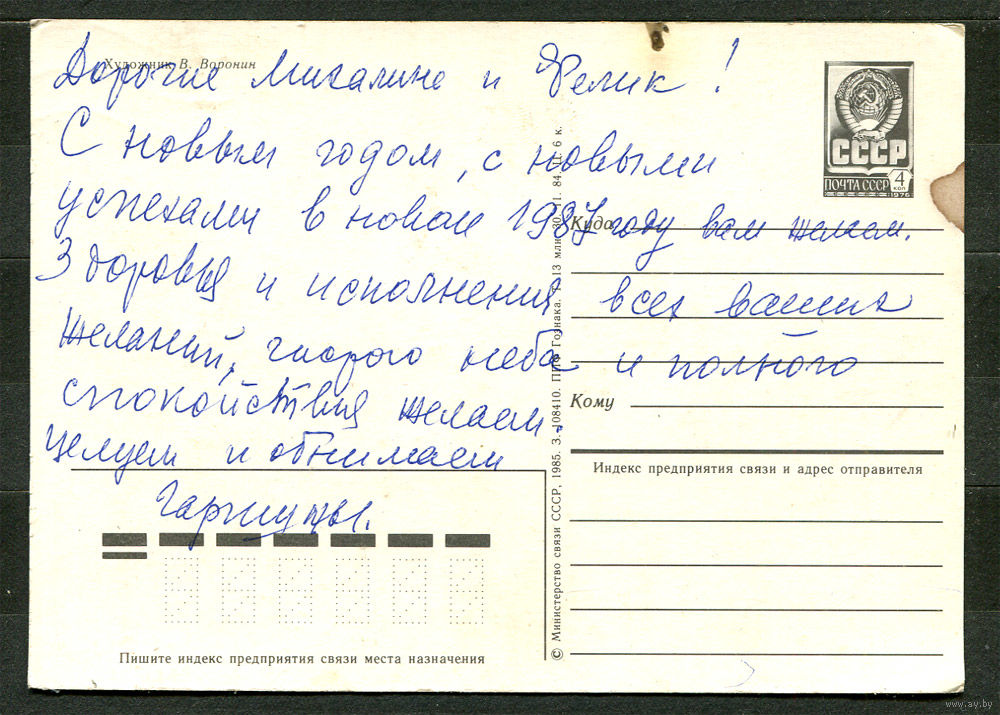 Художник В. Воронин
Дорогие Михалина и Фелик!
С новым годом, с новыми
успехами в новом 1987 году вам желаем.
Здоровья и исполнения всех ваших
желаний, чистого неба и полного
спокойствия желаем.
Целуем и обнимаем
СССР
ПОЧТА СССР 4 КОП
1976
Куда
Кому
Индекс предприятия связи и адрес отправителя
© Министерство связи СССР, 1985. З. 108410. ППФ Гознака.
Пишите индекс предприятия связи места назначения
www.ay.by